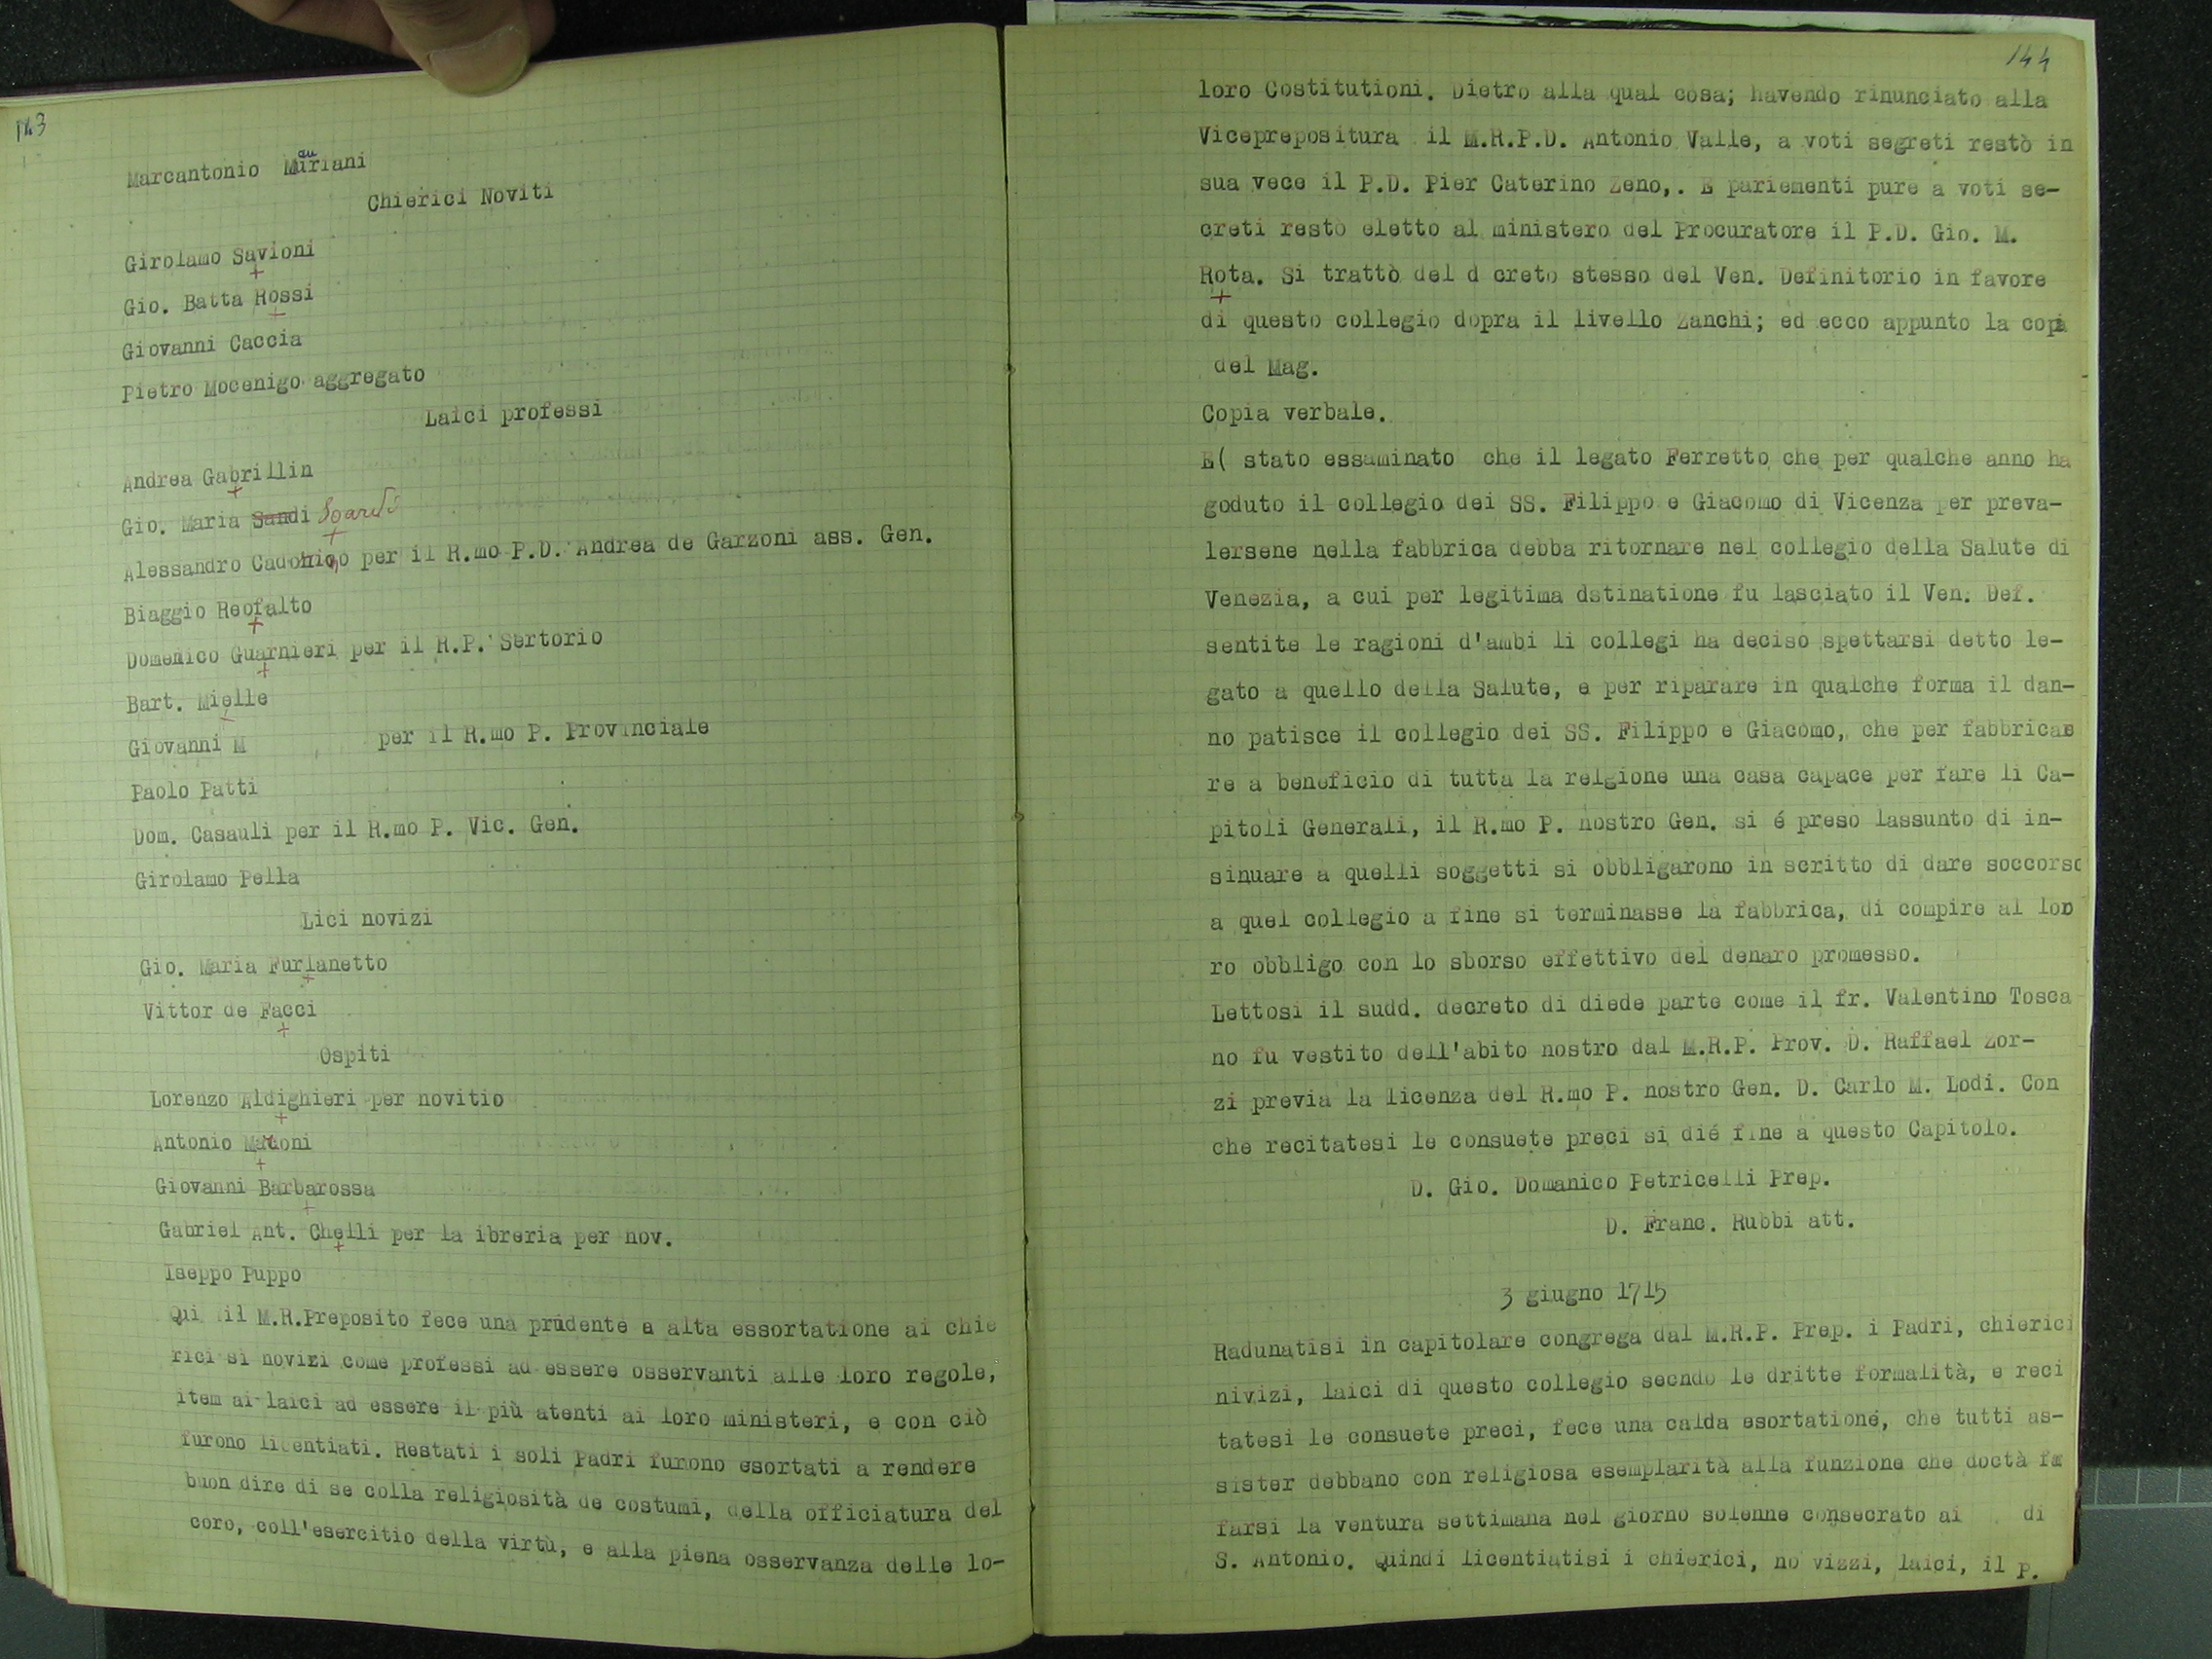 143
Marcantonio Mauriani
Chierici Noviti
Girolamo Savioni
Gio. Batta Rossi
Giovanni Caccia
Pietro Mocenigo aggregato
Laici professi
Andrea Gabrillin
Gio. Maria Sandi Soardi
Alessandro per il R.mo P.D. Andrea de Garzoni ass. Gen.
Biaggio Reofalto
Domenico Guarnieri per il R.P. Sertorio
Bart. Mielle
Giovanni M per il R.mo P. Provinciale
Paolo Patti
Dom. Casauli per il R.mo P. Vic. Gen.
Girolamo Pella
Lici novizi
Gio. Maria Furlanetto
Vittor de Facci
Ospiti
Lorenzo Aldighieri per novitio
Antonio
Giovanni Barbarossa
Gabriel Ant. Chelli per la ibreria per nov.
Iseppo Puppo
Qui il M.R.Preposito fece una prudente e alta essortatione ai chie
rici si novizi come professi ad essere osservanti alle loro regole,
item ai laici ad essere il più atenti ai loro ministeri, e con ciò
furono licentiati. Restati i soli Padri furono esortati a rendere
buon dire di se colla religiosità de costumi, della officiatura del
coro, coll'esercitio della virtù, e alla piena osservanza delle lo-
144
loro Costitutioni. Dietro alla qual cosa; havendo rinunciato alla
Viceprepositura il M.R.P.D. Antonio Valle, a voti segreti restò in
sua vece il P.D. Pier Caterino Zeno,. E pariementi pure a voti se-
creti restò eletto al ministero del Procuratore il P.D. Gio. M.
Rota. Si trattò del d creto stesso del Ven. Definitorio in favore
di questo collegio dopra il livello Zanchi; ed ecco appunto la copia
del Mag.
Copia verbale.
E( stato essaminato che il legato Ferretto che per qualche anno ha
goduto il collegio dei SS. Filippo e Giacomo di Vicenza per preva-
lersene nella fabbrica debba ritornare nel collegio della Salute di
Venezia, a cui per legitima dstinatione fu lasciato il Ven. Def.
sentite le ragioni d'ambi li collegi ha deciso spettarsi detto le-
gato a quello della Salute, e per riparare in qualche forma il dan-
no patisce il collegio dei SS. Filippo e Giacomo, che per fabbricae
re a beneficio di tutta la relgione una casa capace per fare li Ca-
pitoli Generali, il R.mo P. nostro Gen. si é preso lassunto di in-
sinuare a quelli soggetti si obbligarono in scritto di dare soccorso
a quel collegio a fine si terminasse la fabbrica, di compire al loo
ro obbligo con lo sborso effettivo del denaro promesso.
Lettosi il sudd. decreto di diede parte come il fr. Valentino Tosca
no fu vestito dell'abito nostro dal M.R.P. Prov. D. Raffael Zor-
zi previa la licenza del R.mo P. nostro Gen. D. Carlo M. Lodi. Con
che recitatesi le consuete preci si dié fine a questo Capitolo.
D. Gio. Domanico Petricelli Prep.
D. Franc. Rubbi att.
3 giugno 1715
Radunatisi in capitolare congrega dal M.R.P. Prep. i Padri, chierici
nivizi, laici di questo collegio secndo le dritte formalità, e reci
tatesi le consuete preci, fece una calda esortationé, che tutti as-
sister debbano con religiosa esemplarità alla funzione che doctà
farsi la ventura settimana nel giorno solenne consecrato ai di
S. Antonio. Quindi licentiatisi i chierici, no vizzi, laici, il P.